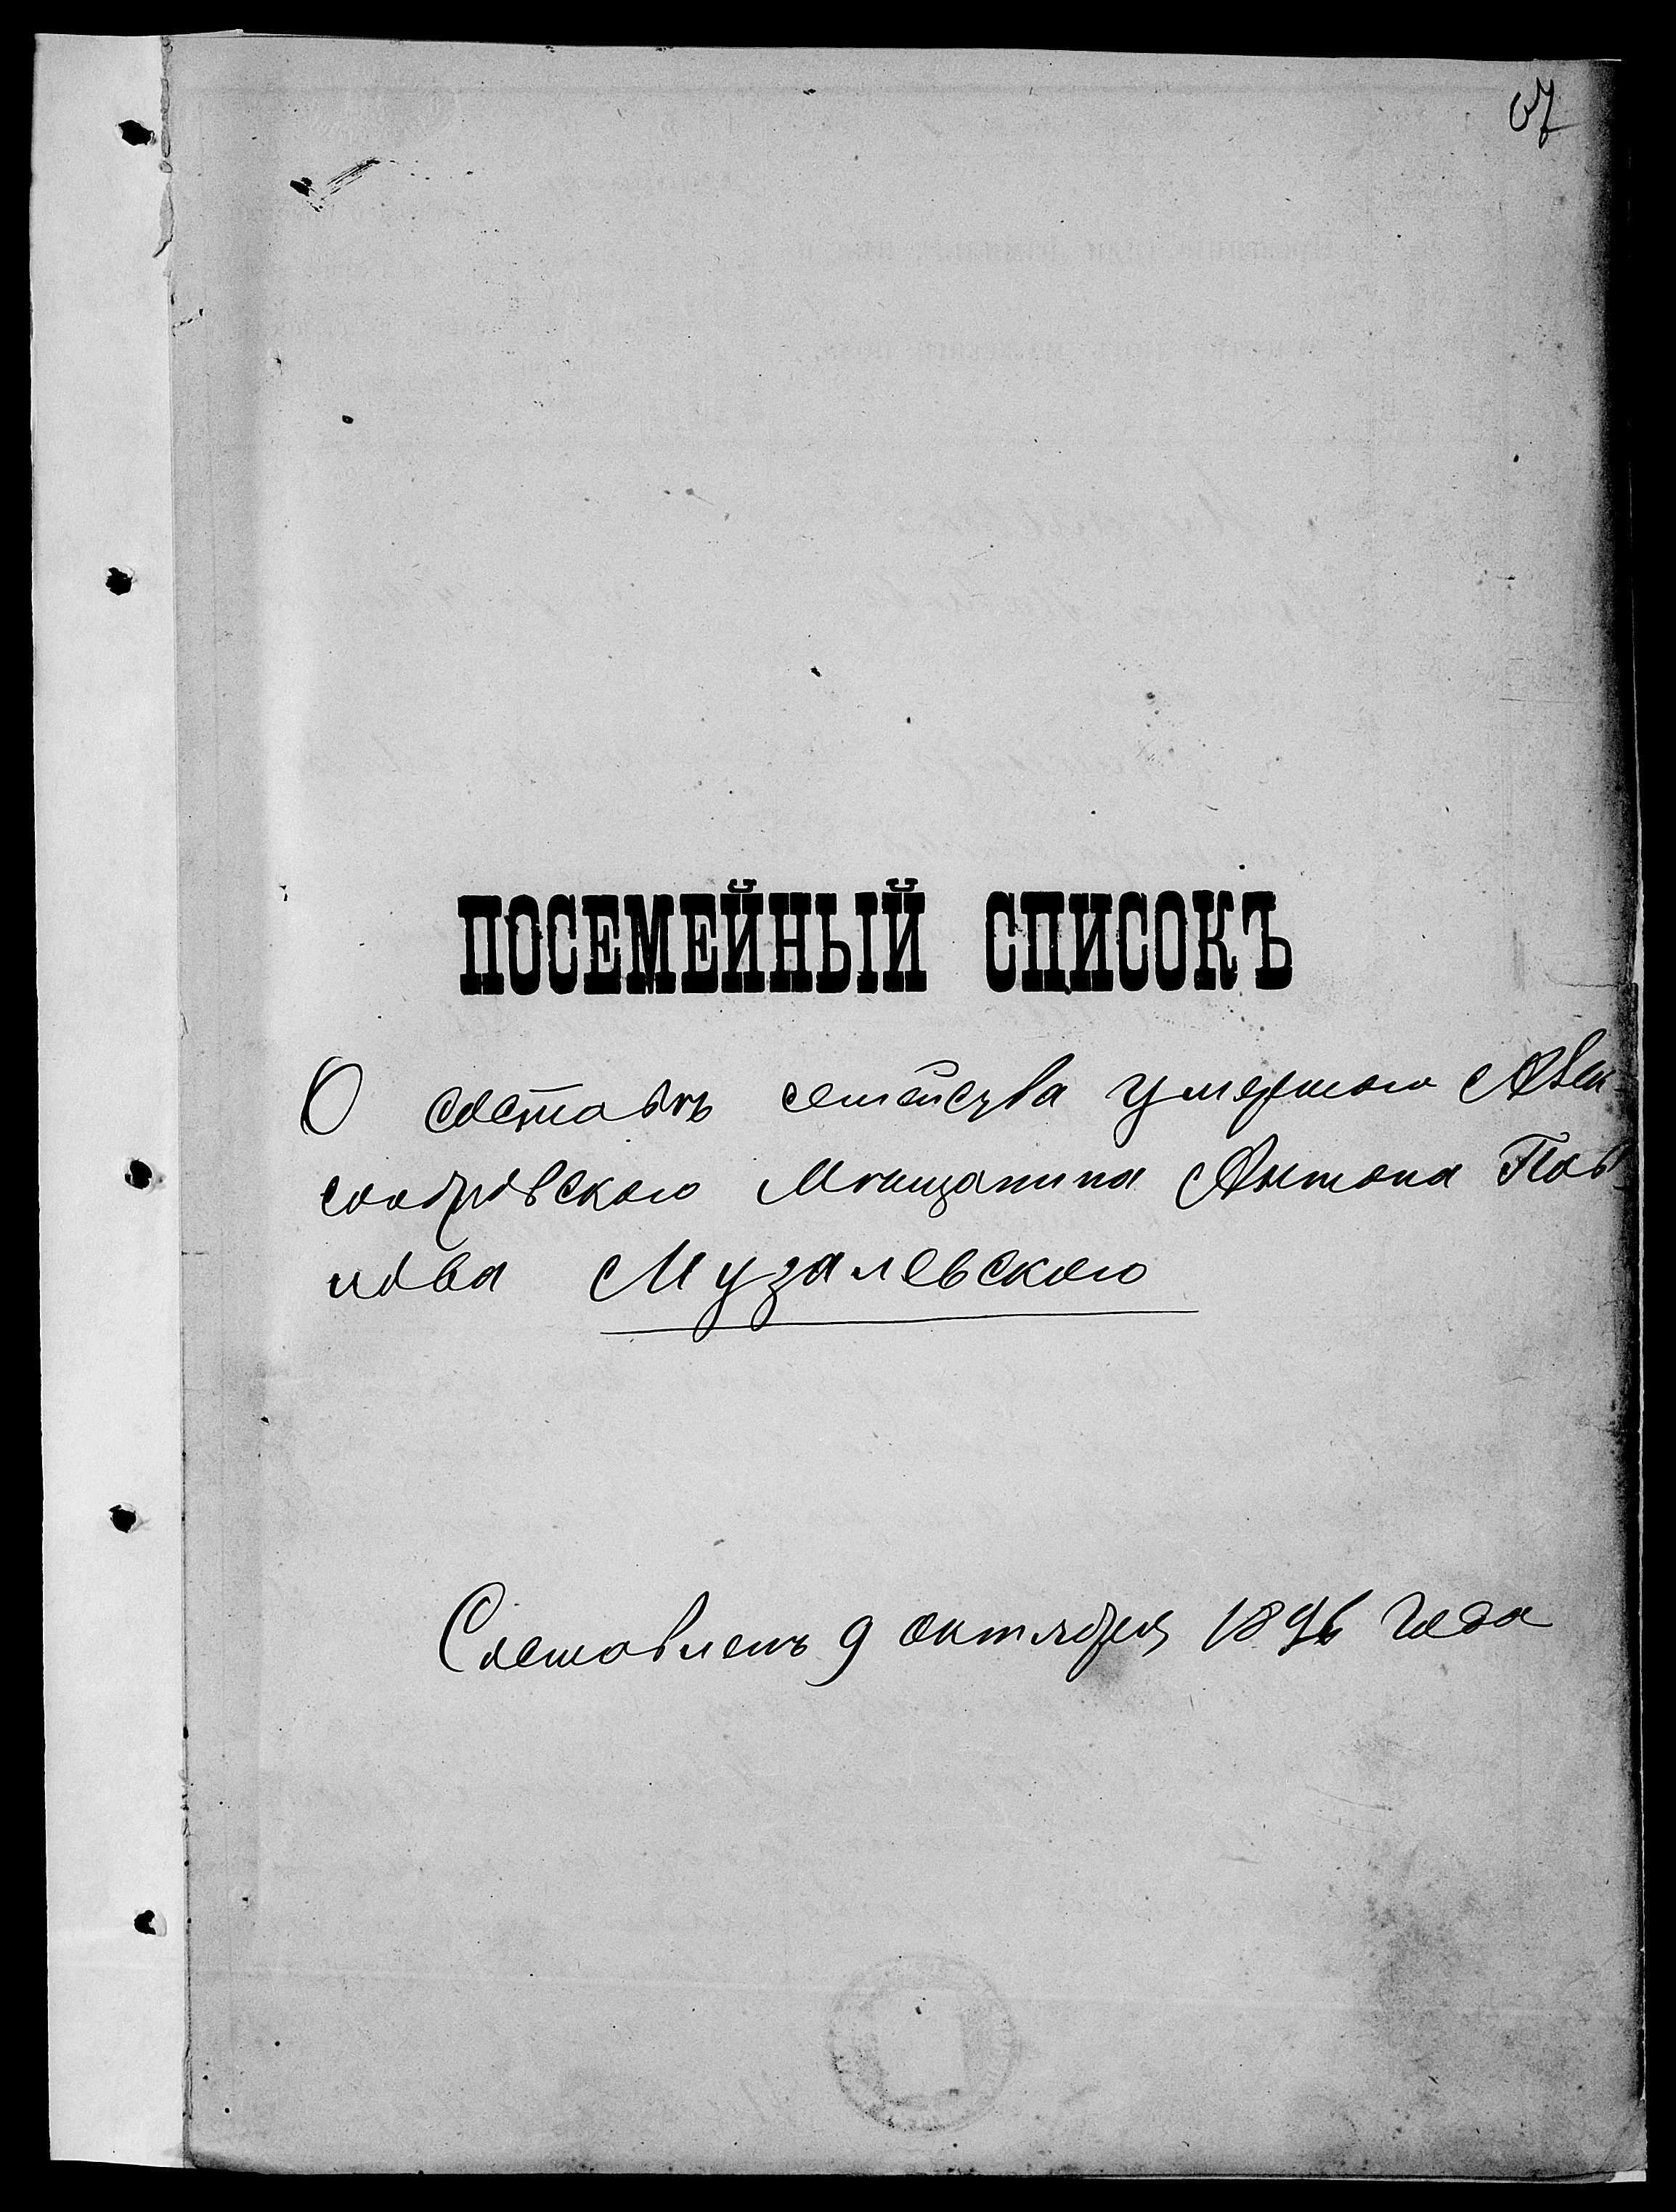 67
ПОСЕМЕЙНЫЙ СПИСОКЪ
О составѣ семейства умершаго Алек-
сандровскаго Мѣщанина Антона Пав-
лова Музалевскаго
Составленъ 9 октября 1896 года